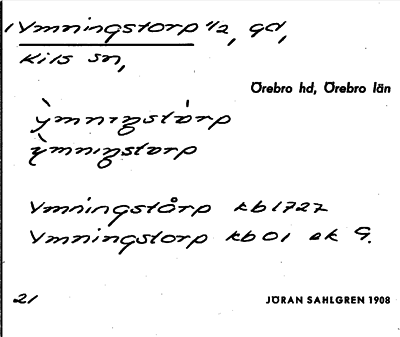 1 Ymningstorp 1/2, gd,
Kils sn,
Örebro hd, Örebro län
ỳmnıŋstȧrp
ỳmnıŋstorp
Ymningstårp kb 1727
Ymningstorp kb 01 ek G.
21
JÖRAN SAHLGREN 1908